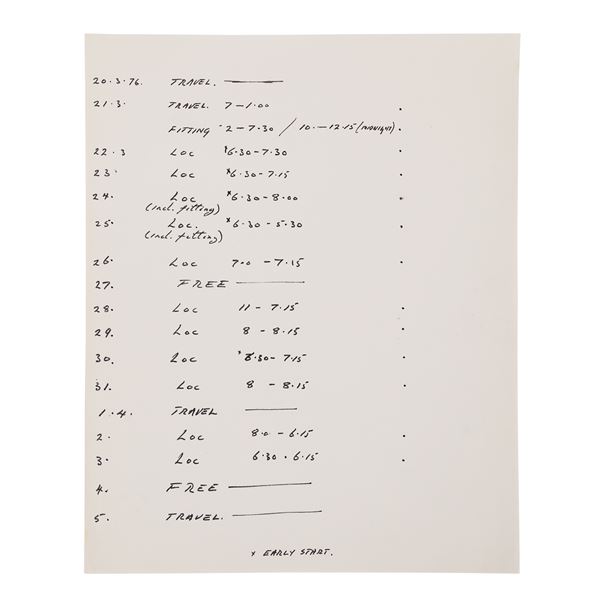 20·3·76. TRAVEL. —
21·3· TRAVEL. 7-1·00 ·
FITTING 2-7·30 / 10·-12·15 (MIDNIGHT) ·
22·3 LOC *6·30-7·30 ·
23· LOC *6·30-7·15 ·
24· LOC *6·30-8·00 ·
(incl. fitting)
25· LOC. *6·30-5·30 ·
(incl. fitting)
26· LOC 7·0 -7·15 ·
27. FREE —
28· LOC 11- 7·15 ·
29. LOC 8 - 8·15 ·
30. LOC *6·30- 7·15 ·
31. LOC 8 - 8·15 ·
1·4. TRAVEL —
2· LOC 8·0 - 6·15 ·
3· LOC 6·30 - 6·15 ·
4. FREE —
5. TRAVEL. —
x EARLY START.